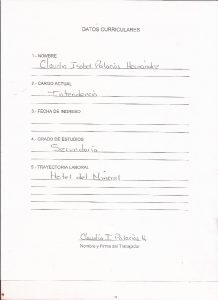 DATOS CURRICULARES
1.- NOMBRE
Claudia Isabel Palacios Hernández
2.- CARGO ACTUAL
Intendencia
3.- FECHA DE INGRESO
4.- GRADO DE ESTUDIOS
Secundaria
5.- TRAYECTORIA LABORAL
Hotel del Mineral
Claudia I. Palacios H.
Nombre y Firma del Trabajador